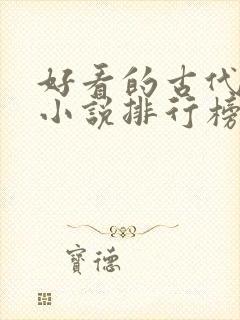 好看的古代
小说排行榜
寶德